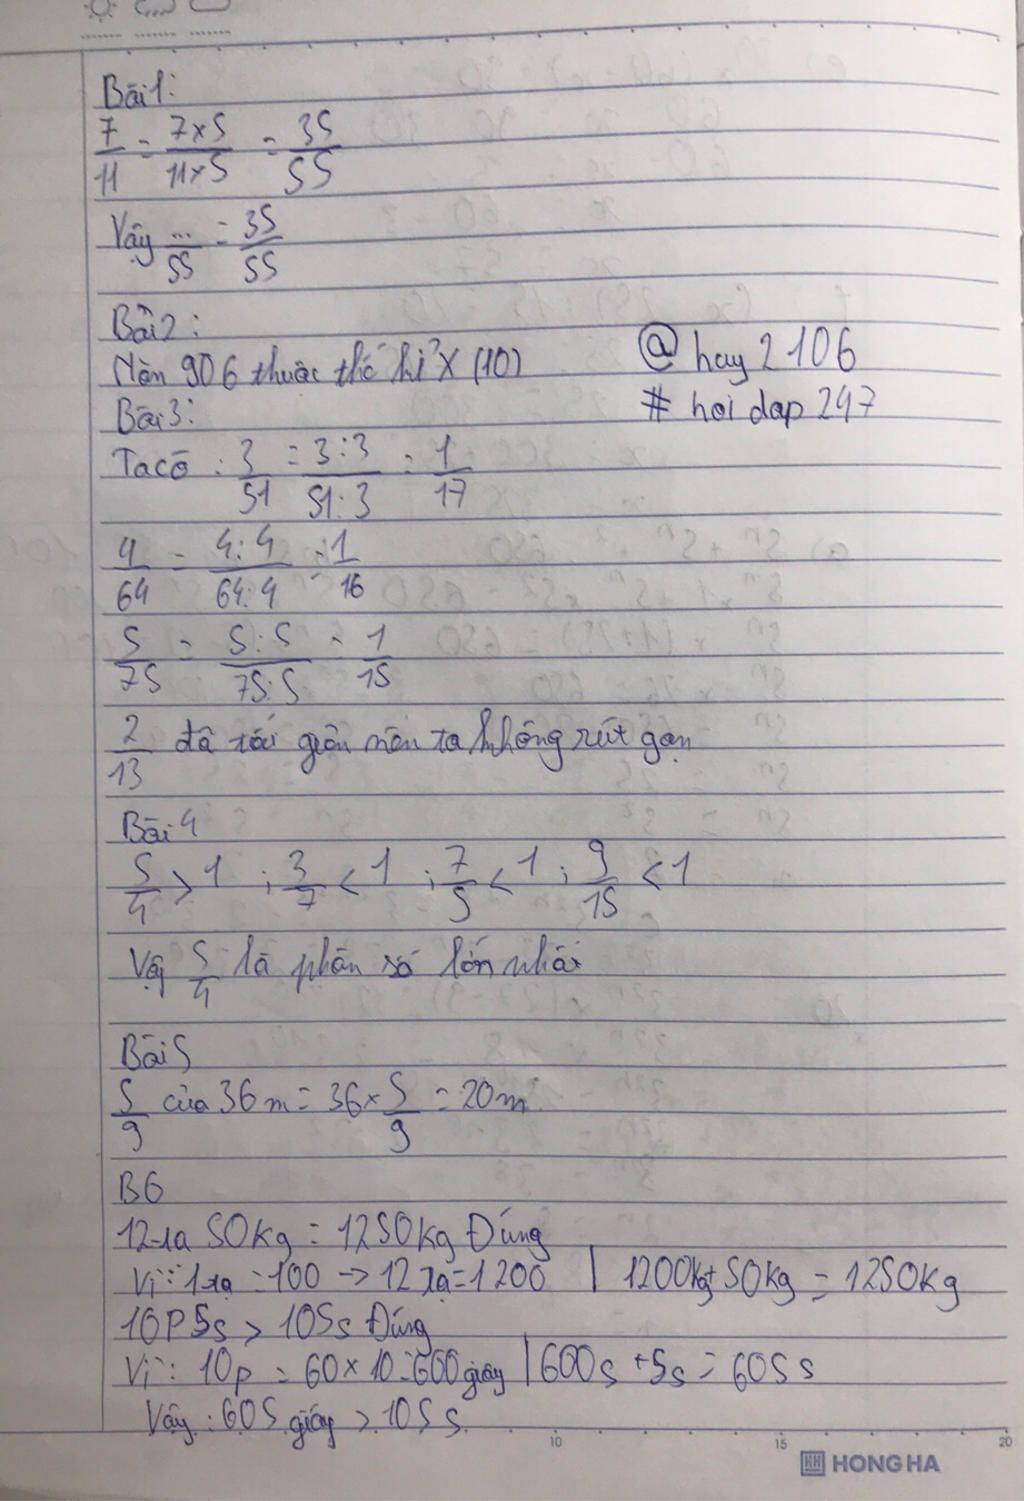 Bài 1:
7/11 = 7x5/11x5 = 35/55
Vậy .../55 = 35/55
Bài 2:
Năm 906 thuộc thế kỉ X (10)
@ hay2106
# hoidap247
Bài 3:
Ta có : 3/51 = 3:3/51:3 = 1/17
4/64 = 4:4/64:4 = 1/16
5/75 = 5:5/75:5 = 1/15
2/13 đã tối giản nên ta không rút gọn
Bài 4
5/4 > 1 ; 3/7 < 1 ; 7/9 < 1 ; 9/15 < 1
Vậy 5/4 là phân số lớn nhất
Bài 5
5/9 của 36m = 36 x 5/9 = 20m
B6
12 tạ 50kg = 1250kg Đúng
Vì : 1 tạ = 100 → 12 tạ = 1200 | 1200kg + 50kg = 1250kg
10P 5s > 105s Đúng
Vì : 10p = 60 x 10 = 600 giây | 600s + 5s = 605s
Vậy : 605 giây > 105s
10 15 20
HONG HA